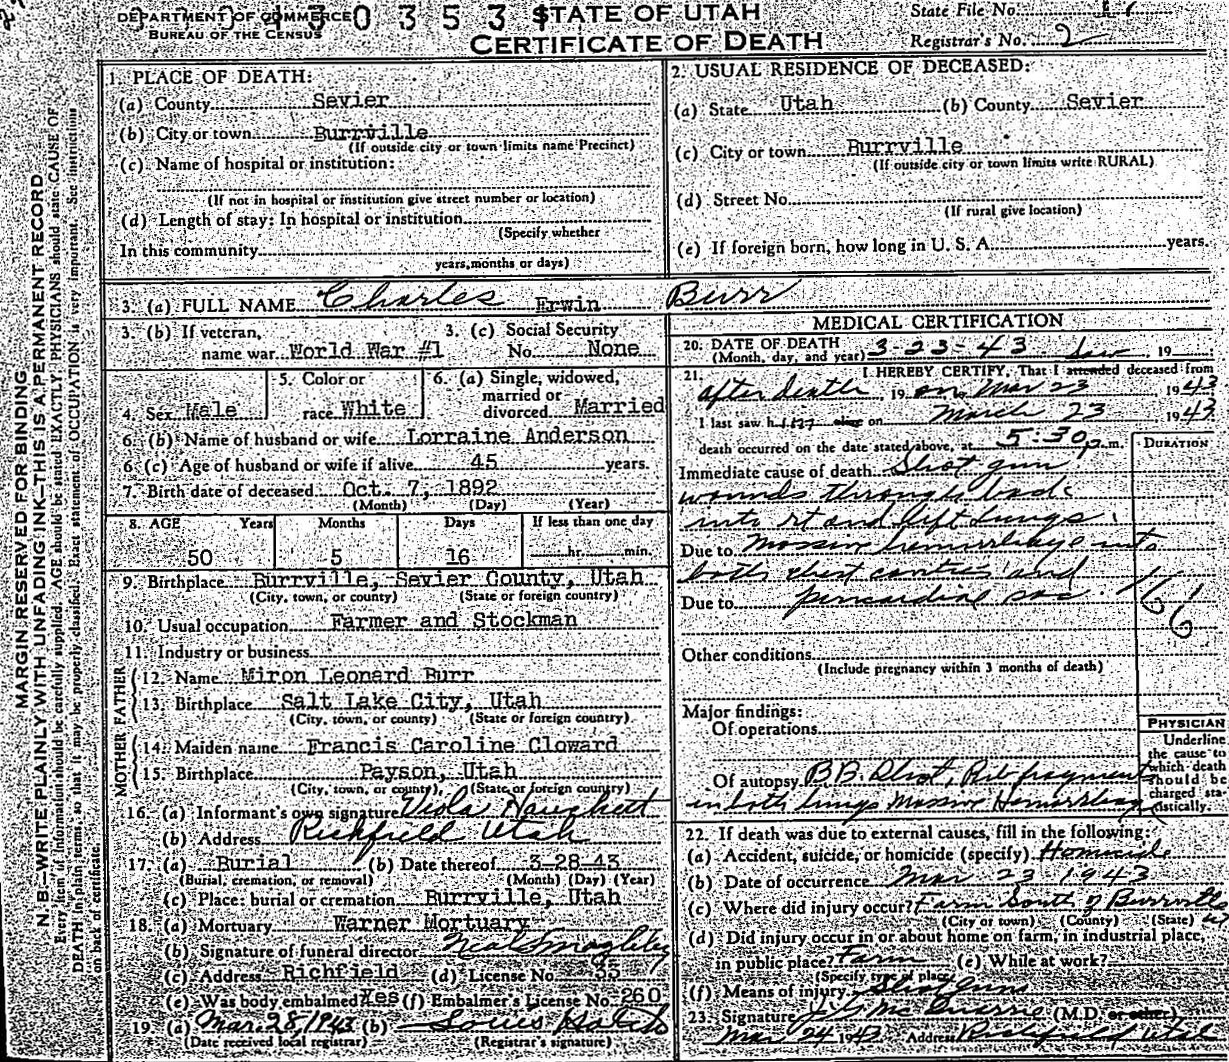 DEPARTMENT OF COMMERCE
BUREAU OF THE CENSUS
0 3 5 3
STATE OF UTAH
CERTIFICATE OF DEATH
State File No.
Registrar's No. 2
MARGIN RESERVED FOR BINDING
N. B.—WRITE PLAINLY WITH UNFADING INK—THIS IS A PERMANENT RECORD
Every item of information should be carefully supplied. AGE should be stated EXACTLY. PHYSICIANS should state CAUSE OF
DEATH in plain terms, so that it may be properly classified. Exact statement of OCCUPATION is very important. See instructions
on back of certificate.
1. PLACE OF DEATH:
(a) County Sevier
(b) City or town Burrville
(If outside city or town limits name Precinct)
(c) Name of hospital or institution:
(If not in hospital or institution give street number or location)
(d) Length of stay: In hospital or institution
(Specify whether
In this community
years, months or days)
2. USUAL RESIDENCE OF DECEASED:
(a) State Utah (b) County Sevier
(c) City or town Burrville
(If outside city or town limits write RURAL)
(d) Street No.
(If rural give location)
(e) If foreign born, how long in U. S. A. years.
3. (a) FULL NAME Charles Erwin Burr
3. (b) If veteran,
name war World War #1
3. (c) Social Security
No. None
4. Sex Male
5. Color or
race White
6. (a) Single, widowed,
married or
divorced Married
6. (b) Name of husband or wife Lorraine Anderson
6. (c) Age of husband or wife if alive 45 years.
7. Birth date of deceased Oct. 7, 1892
(Month) (Day) (Year)
8. AGE Years Months Days If less than one day
50 5 16 hr. min.
9. Birthplace Burrville, Sevier County, Utah
(City, town, or county) (State or foreign country)
10. Usual occupation Farmer and Stockman
11. Industry or business
FATHER
12. Name Miron Leonard Burr
13. Birthplace Salt Lake City, Utah
(City, town, or county) (State or foreign country)
MOTHER
14. Maiden name Francis Caroline Cloward
15. Birthplace Payson, Utah
(City, town, or county) (State or foreign country)
16. (a) Informant's own signature Viola
(b) Address Richfield Utah
17. (a) Burial (b) Date thereof 3-28-43
(Burial, cremation, or removal) (Month) (Day) (Year)
(c) Place: burial or cremation Burrville, Utah
18. (a) Mortuary Warner Mortuary
(b) Signature of funeral director Neal
(c) Address Richfield (d) License No. 35
(e) Was body embalmed Yes (f) Embalmer's License No. 260
19. (a) Mar. 28, 1943 (b)
(Date received local registrar) (Registrar's signature)
MEDICAL CERTIFICATION
20. DATE OF DEATH
(Month, day, and year) 3-23-43 Saw, 19
21. I HEREBY CERTIFY, That I attended deceased from
after death 19 on Mar 23 1943
I last saw him on March 23 1943
death occurred on the date stated above, at 5:30 p.m.
DURATION
Immediate cause of death Shot gun
wounds through back
into rt and left lungs.
Due to Massive hemorrhage into
both chest cavities and
Due to pericardial sac.
166
Other conditions
(Include pregnancy within 3 months of death)
Major findings:
Of operations
Of autopsy BB Shot, Rib fragments
in both lungs Massive Hemorrhage
PHYSICIAN
Underline
the cause to
which death
should be
charged sta-
tistically.
22. If death was due to external causes, fill in the following:
(a) Accident, suicide, or homicide (specify) Homicide
(b) Date of occurrence Mar 23 1943
(c) Where did injury occur? Farm South of Burrville
(City or town) (County) (State)
(d) Did injury occur in or about home on farm, in industrial place,
in public place? Farm (e) While at work?
(Specify type of place)
(f) Means of injury Shot guns
23. Signature Mc Quarrie (M.D. or other)
Mar 24 1943 Address Richfield Utah